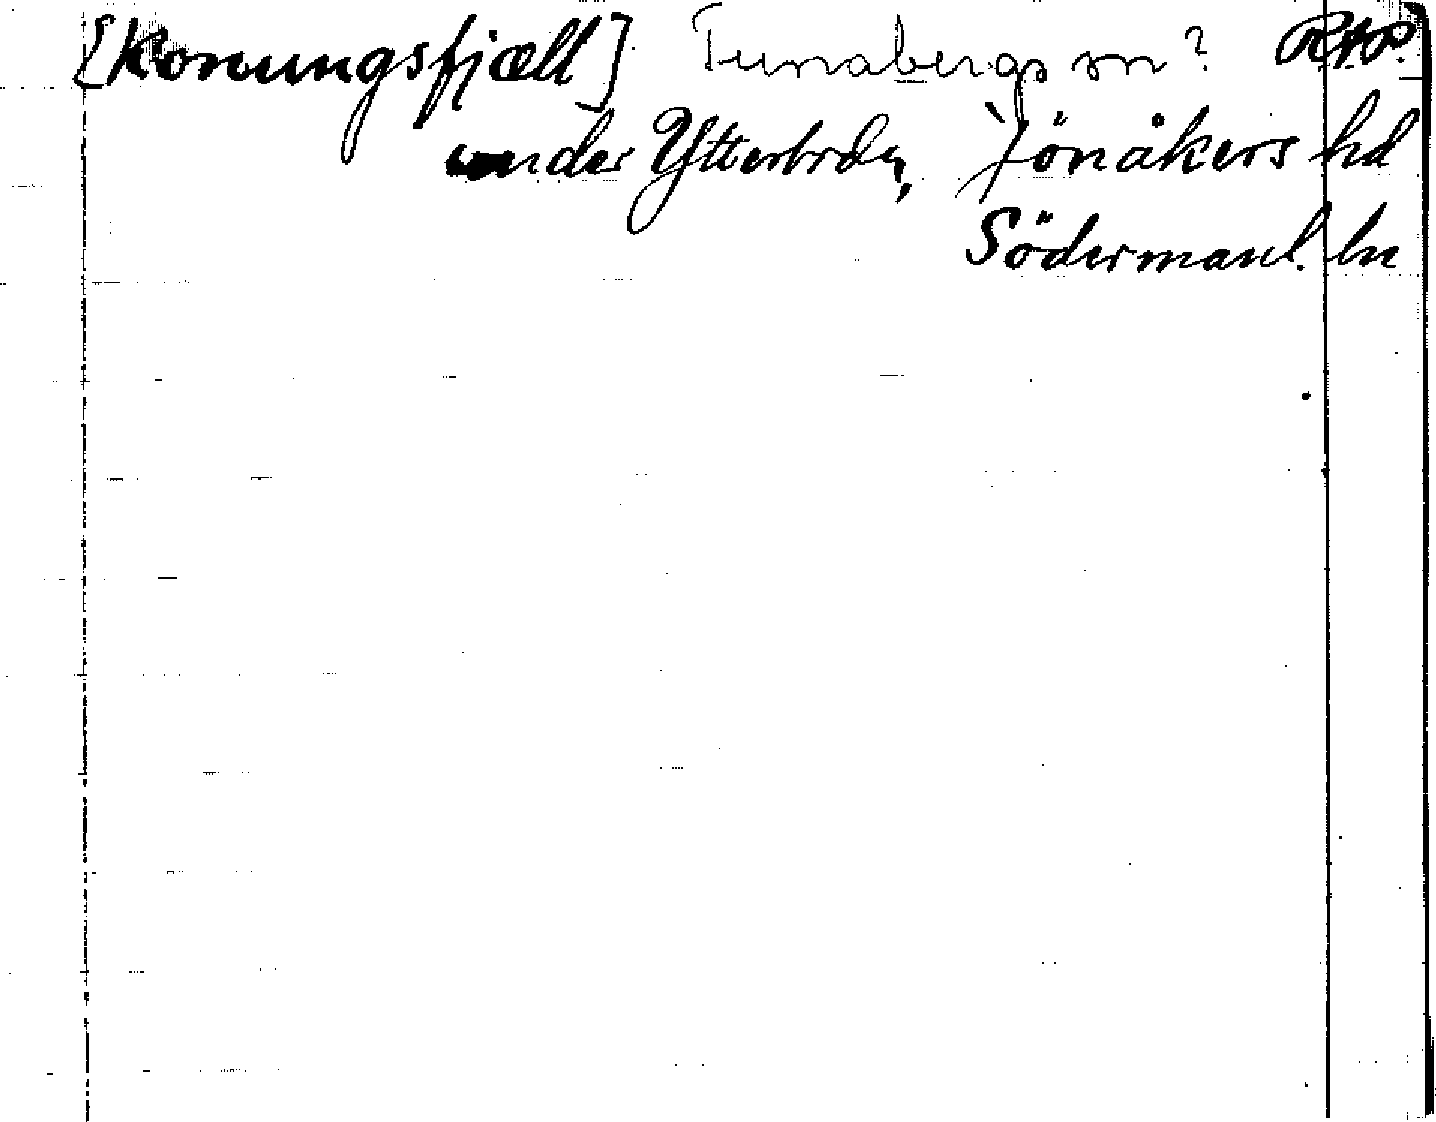 [Konungsfjæll] Tunabergs sn? RAP.
under Ytterbrdn, Jönåkers hd
Södermanl. ln